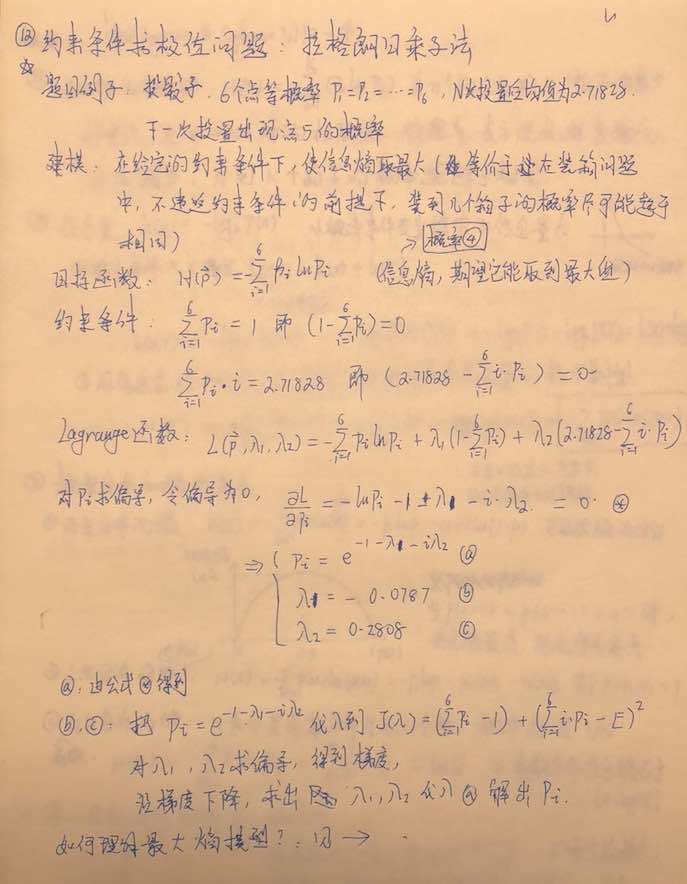 ⑬ 约束条件求极值问题：拉格朗日乘子法
☆ 题目例子：投骰子.6个点等概率 P₁=P₂=…=P₆，N次投置后均值为2.71828.
下一次投置出现点5的概率
建模：在给定的约束条件下，使信息熵取最大（等价于在装箱问题
中，不违返约束条件的前提下，装到几个箱子的概率尽可能趋于
相同） → 概率④
目标函数：H(p⃗)=-∑_{i=1}^{6} Pi ln Pi （信息熵，期望它能取到最大值）
约束条件：∑_{i=1}^{6} Pi = 1 即 (1-∑_{i=1}^{6} Pi)=0
∑_{i=1}^{6} Pi·i = 2.71828 即 (2.71828 - ∑_{i=1}^{6} i·Pi) = 0
Lagrange函数：L(p⃗,λ₁,λ₂) = -∑_{i=1}^{6} Pi ln Pi + λ₁(1-∑_{i=1}^{6} Pi) + λ₂(2.71828-∑_{i=1}^{6} i·Pi)
对Pi求偏导，令偏导为0, ∂L/∂Pi = -ln Pi - 1 - λ₁ - i·λ₂ = 0. ⊛
⇒ { Pi = e^{-1-λ₁-iλ₂} ⓐ
λ₁ = -0.0787 ⓑ
λ₂ = 0.2808 ⓒ
ⓐ：由公式⊛得到
ⓑ,ⓒ：把 Pi = e^{-1-λ₁-iλ₂} 代入到 J(λ) = (∑_{i=1}^{6} Pi - 1) + (∑_{i=1}^{6} i·Pi - E)²
对λ₁,λ₂求偏导，得到梯度，
沿梯度下降，求出 λ₁,λ₂ 代入ⓐ 解出 Pi.
如何理解最大熵模型？： →